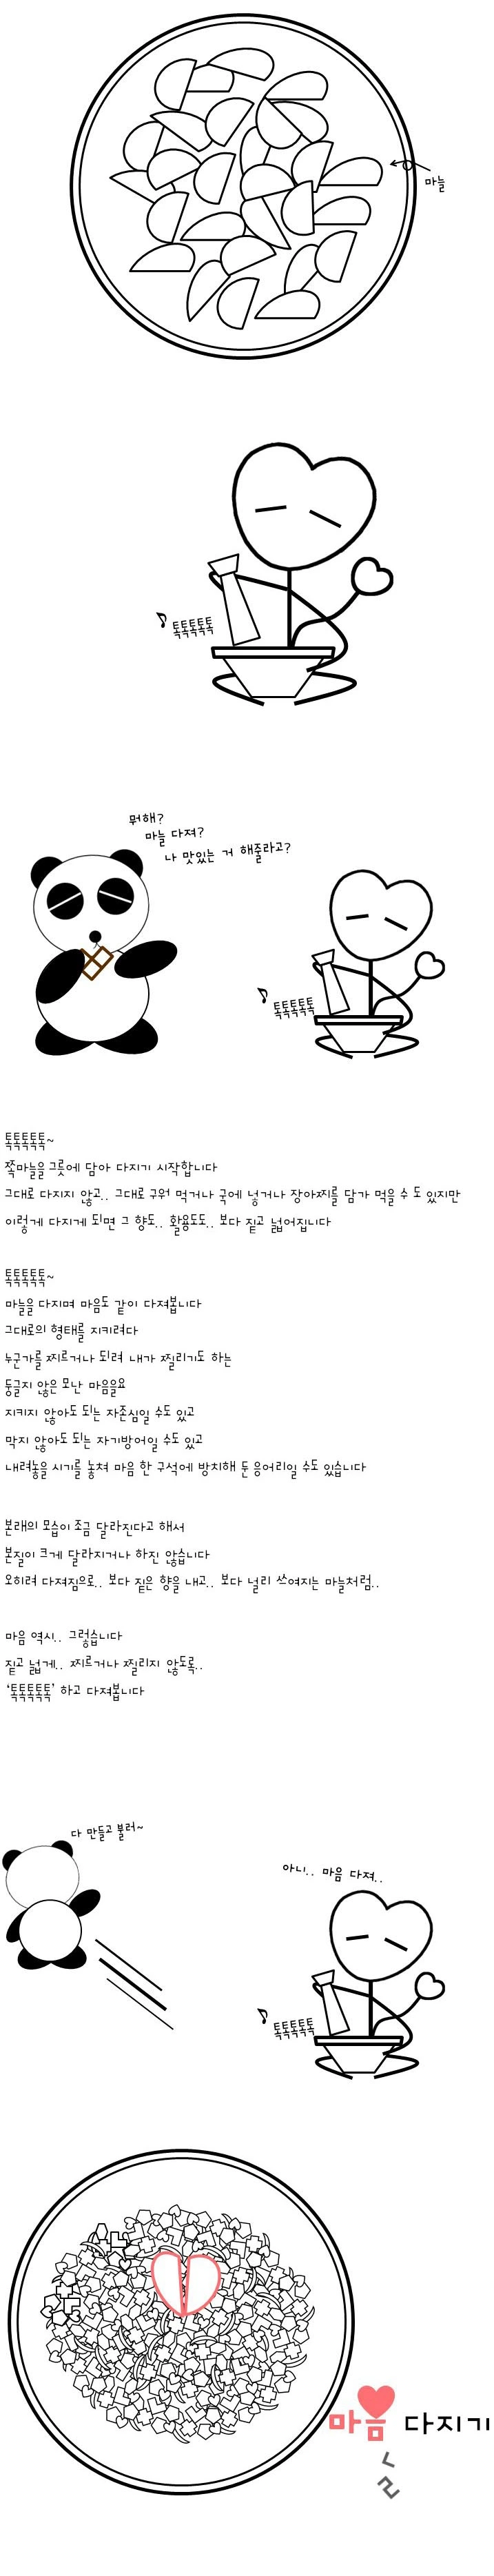 마늘
톡톡톡톡톡
뭐해?
마늘 다져?
나 맛있는 거 해줄라고?
톡톡톡톡톡
톡톡톡톡톡~
쪽마늘을 그릇에 담아 다지기 시작합니다
그대로 다지지 않고.. 그대로 구워 먹거나 국에 넣거나 장아찌를 담가 먹을 수 도 있지만
이렇게 다지게 되면 그 향도.. 활용도도.. 보다 짙고 넓어집니다
톡톡톡톡톡~
마늘을 다지며 마음도 같이 다져봅니다
그대로의 형태를 지키려다
누군가를 찌르거나 되려 내가 찔리기도 하는
둥글지 않은 모난 마음을요
지키지 않아도 되는 자존심일 수도 있고
막지 않아도 되는 자기방어일 수도 있고
내려놓을 시기를 놓쳐 마음 한 구석에 방치해 둔 응어리일 수도 있습니다
본래의 모습이 조금 달라진다고 해서
본질이 크게 달라지거나 하진 않습니다
오히려 다져짐으로.. 보다 짙은 향을 내고.. 보다 널리 쓰여지는 마늘처럼..
마음 역시.. 그렇습니다
짙고 넓게.. 찌르거나 찔리지 않도록..
‘톡톡톡톡톡’ 하고 다져봅니다
다 만들고 불러~
아니.. 마음 다져..
톡톡톡톡톡
마음 다지기
ㄴ
ㄹ